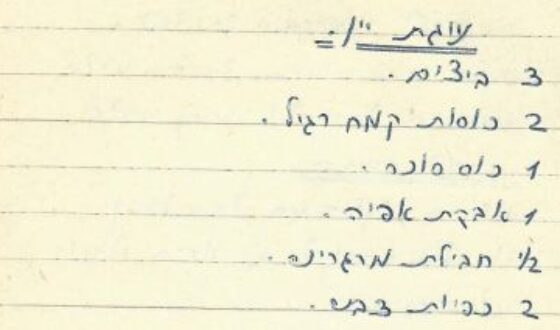 עוגת יין.
3 ביצים.
2 כוסות קמח רגיל.
1 כוס סוכר.
1 אבקת אפיה.
1/2 חבילת מרגרינה.
2 כפיות דבש.